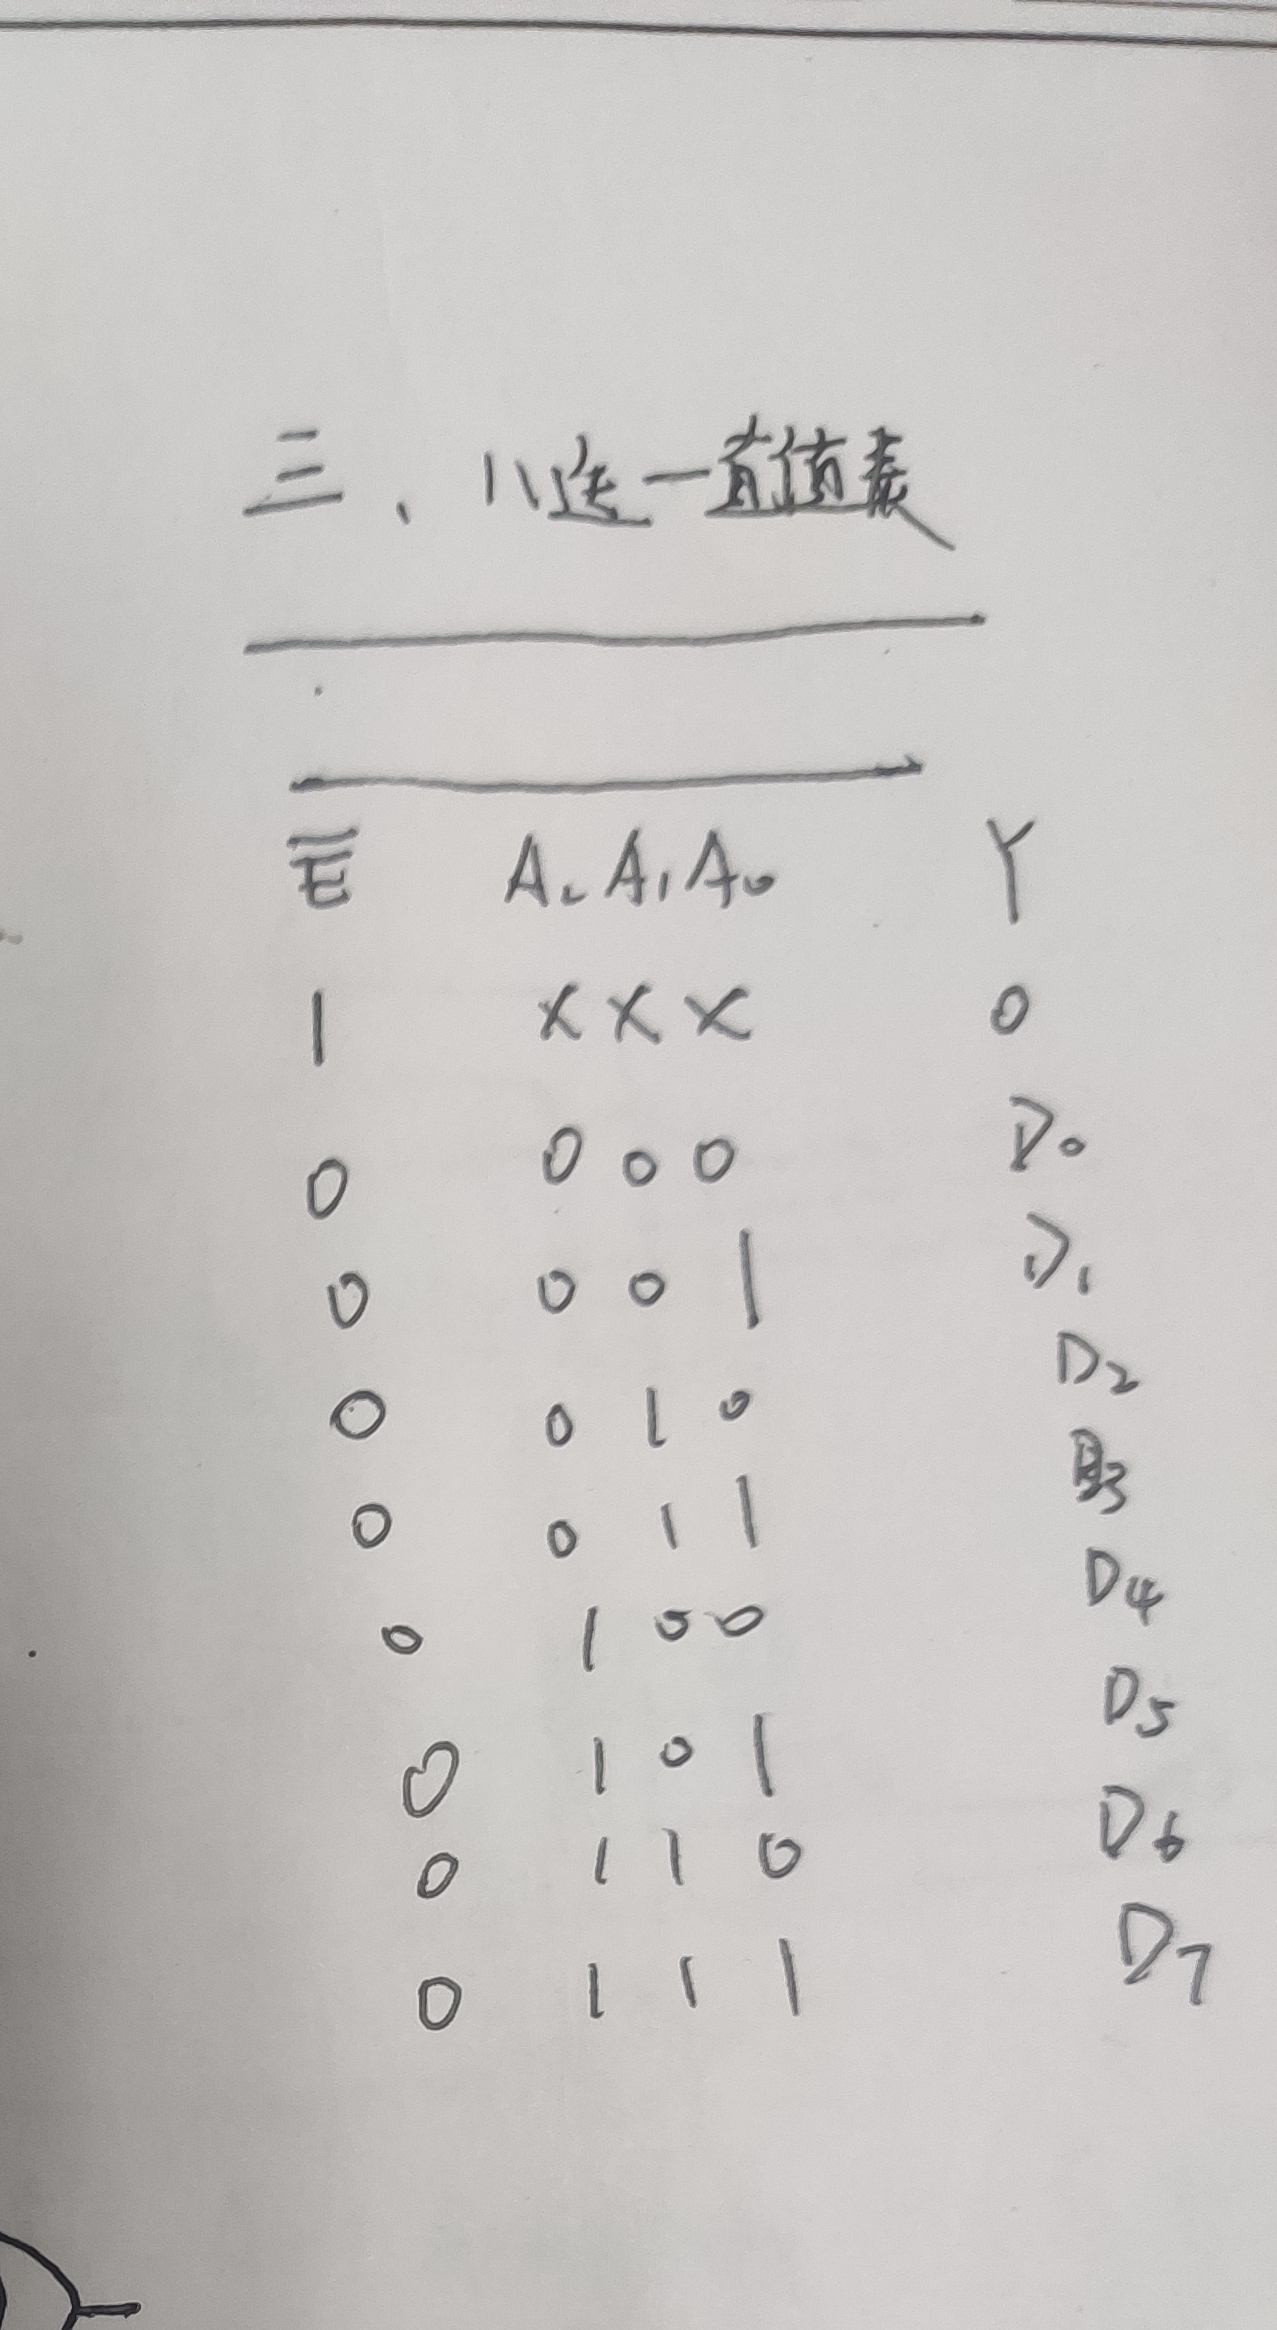 三、八选一真值表
E̅ A₂ A₁ A₀ Y
1 × × × 0
0 0 0 0 D₀
0 0 0 1 D₁
0 0 1 0 D₂
0 0 1 1 D₃
0 1 0 0 D₄
0 1 0 1 D₅
0 1 1 0 D₆
0 1 1 1 D₇